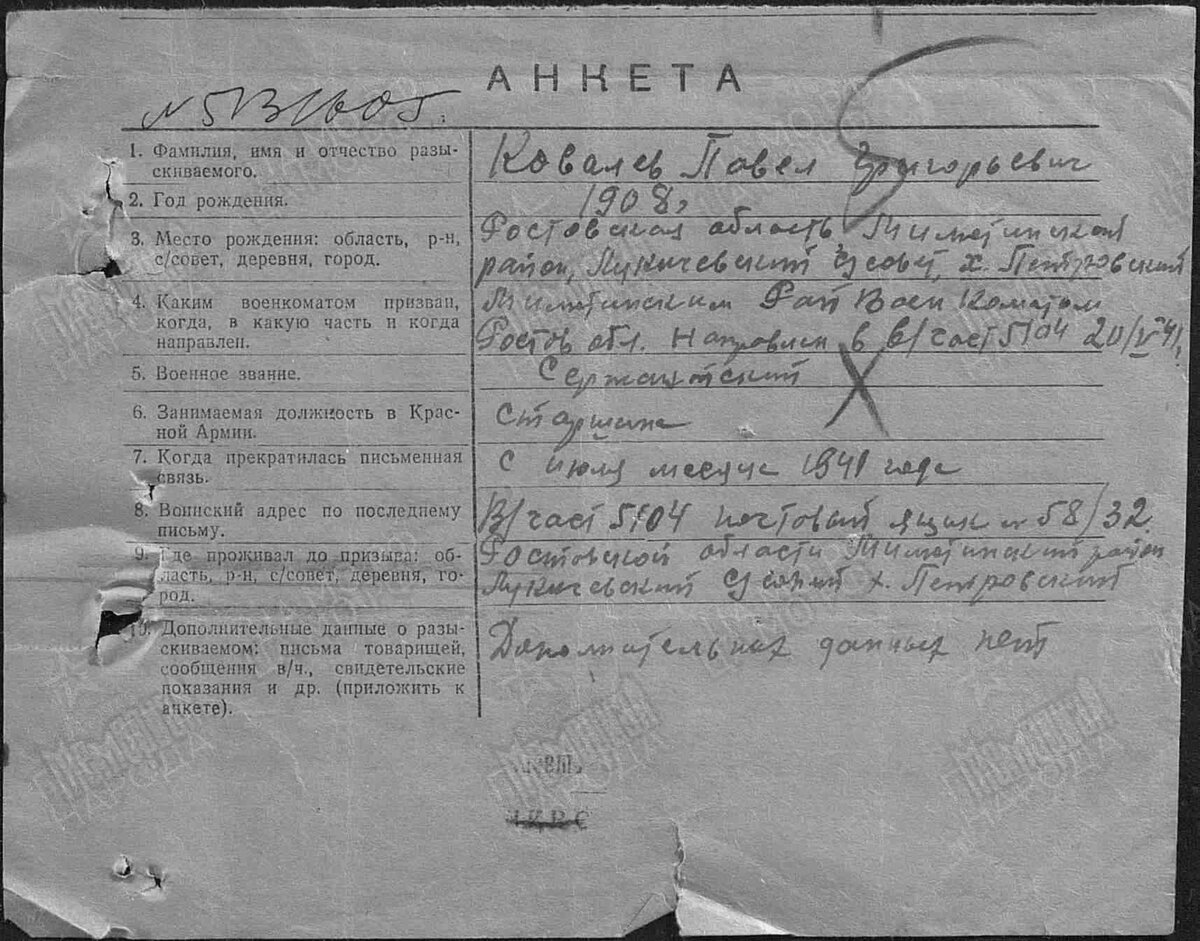 АНКЕТА
1. Фамилия, имя и отчество разы-
скиваемого.
Ковалев Павел Григорьевич
2. Год рождения.
1908,
3. Место рождения: область, р-н,
с/совет, деревня, город.
Ростовская область
район, х. Петровский
4. Каким военкоматом призван,
когда, в какую часть и когда
направлен.
Рай Воен Коматом
Ростов обл. Направлен в в/част 5104 20/
5. Военное звание.
Сержантский
6. Занимаемая должность в Крас-
ной Армии.
Старшина
7. Когда прекратилась письменная
связь.
с июля месяца 1941 года
8. Воинский адрес по последнему
письму.
В/част 5104 почтовый ящик № 58/32
9. Где проживал до призыва: об-
ласть, р-н, с/совет, деревня, го-
род.
Ростовской области район
х. Петровский
10. Дополнительные данные о разы-
скиваемом: письма товарищей,
сообщения в/ч., свидетельские
показания и др. (приложить к
анкете).
Дополнительных данных нет